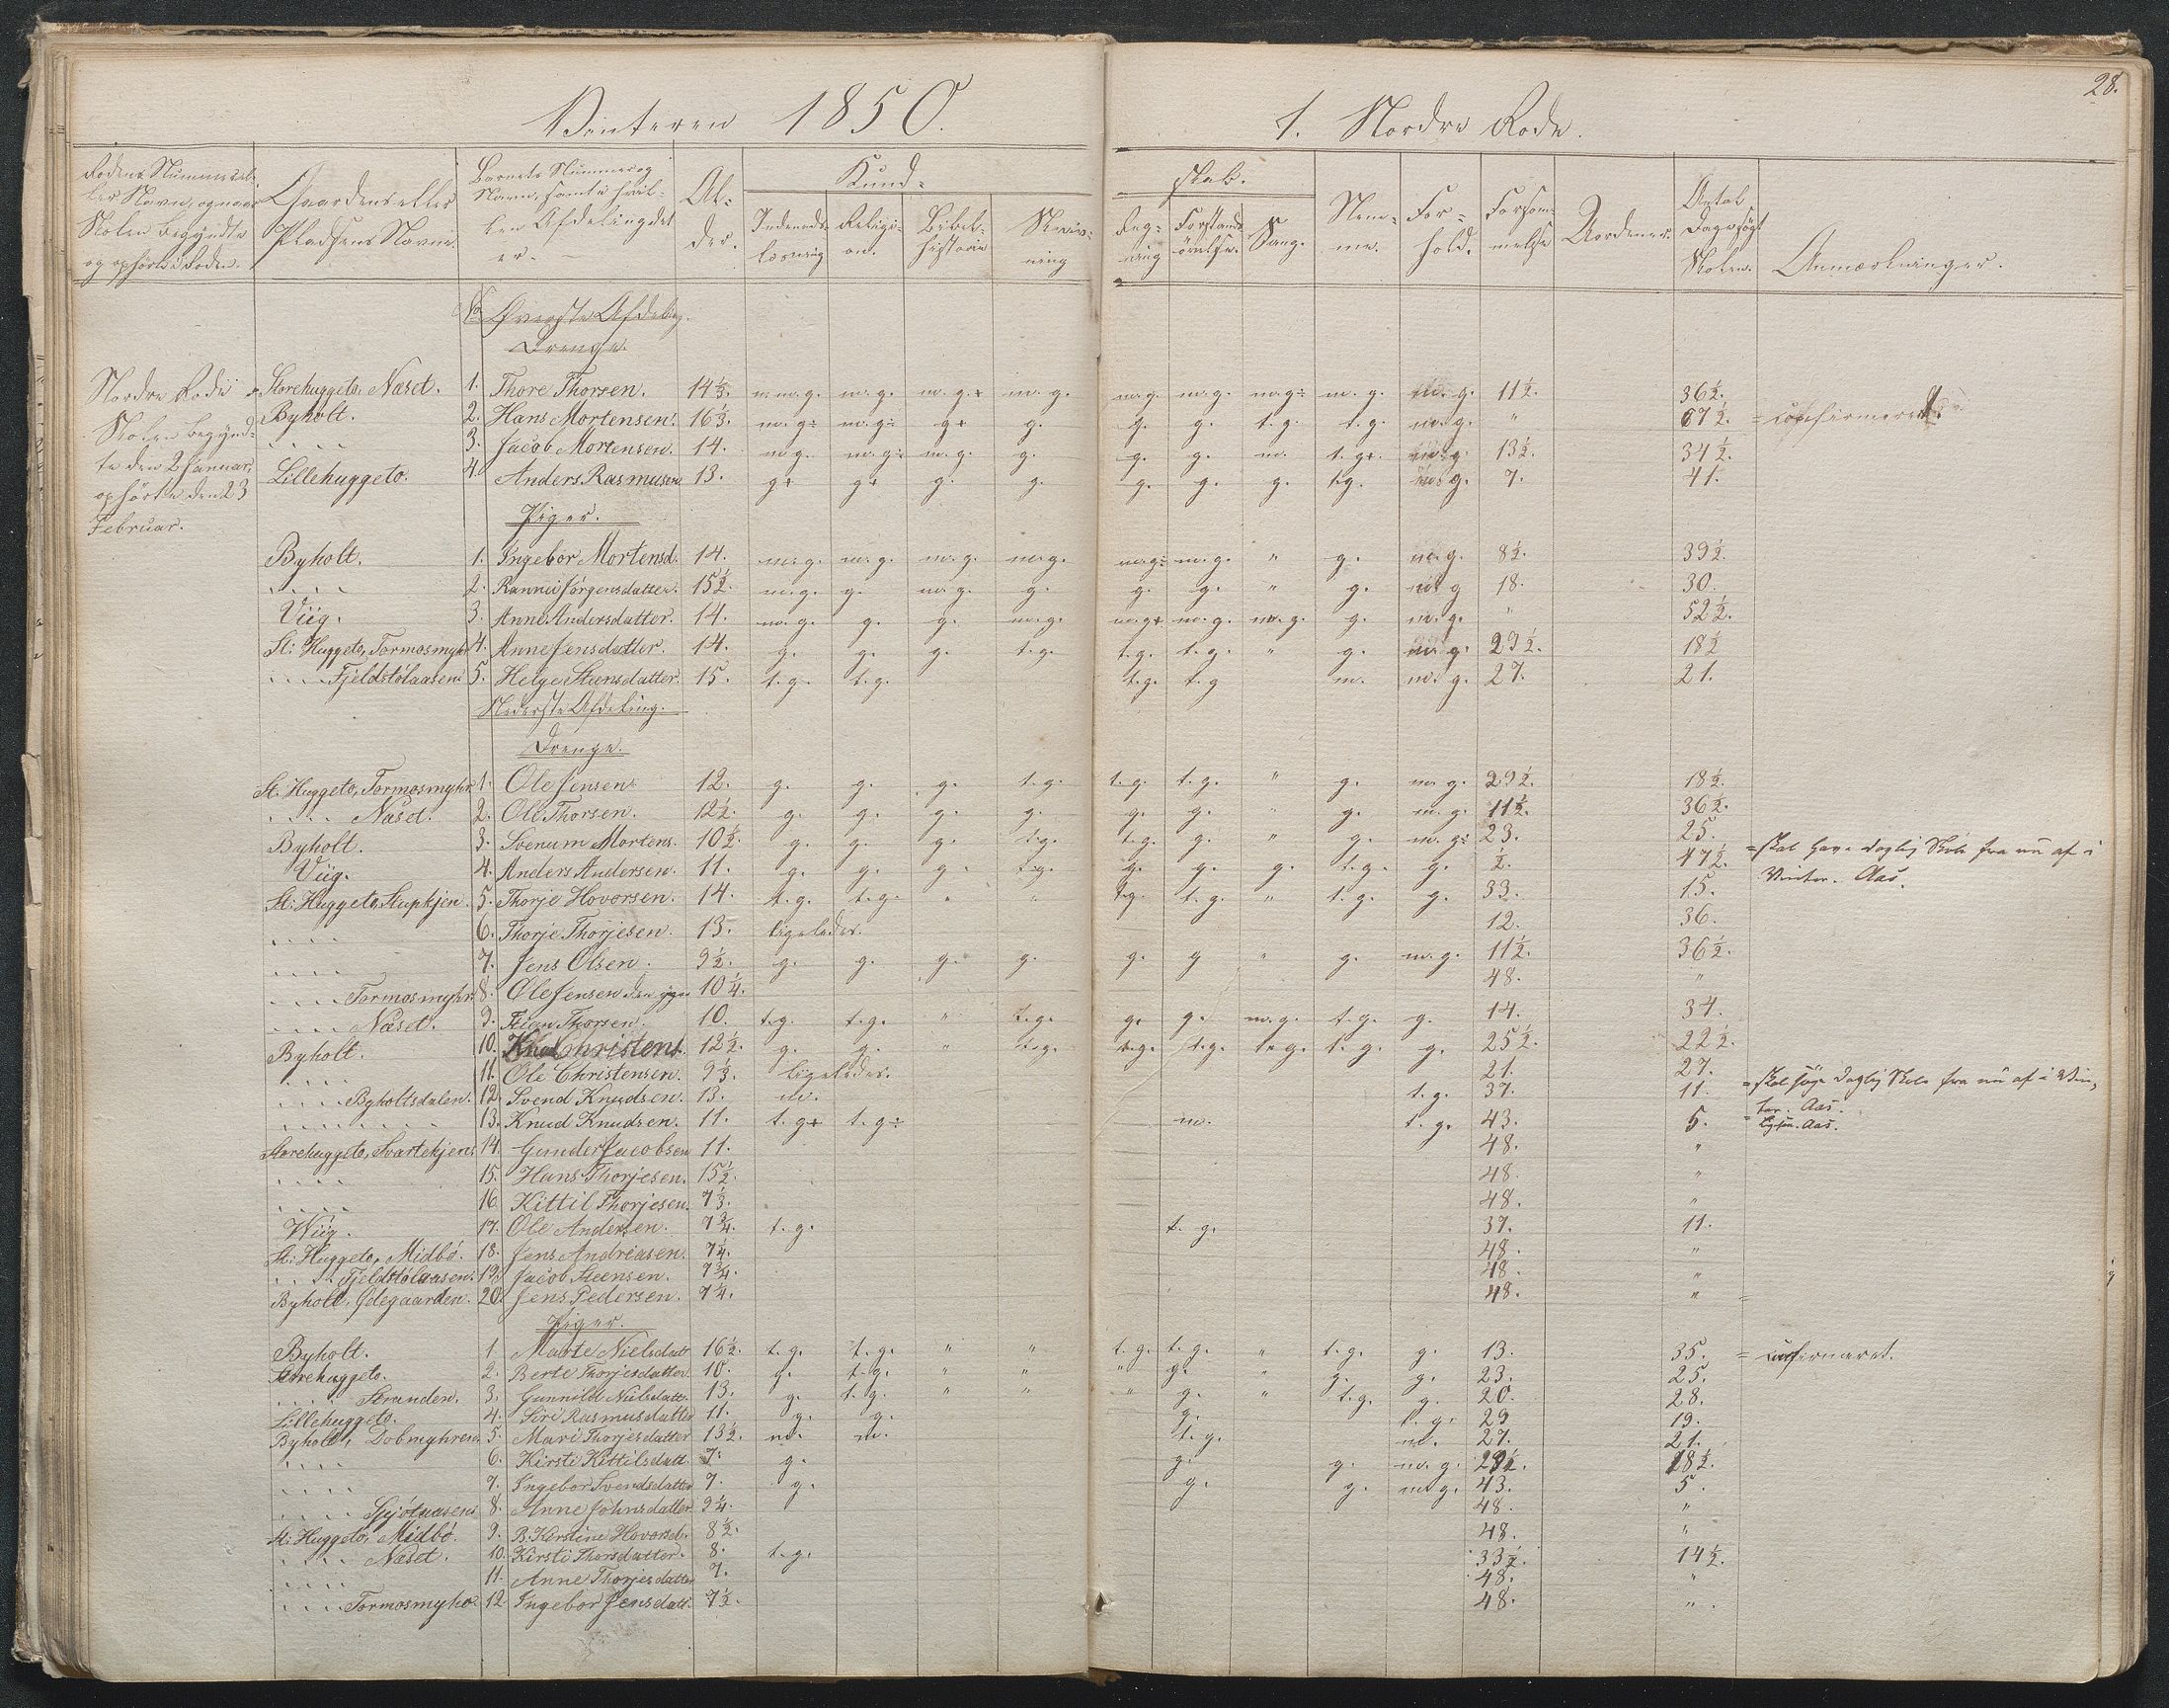 Vinteren 1850.
1. Nordre Rode.
28.
Rodens Nummer el-
ler Navn, og naar
Skolen begyndte
og ophørte i Roden.
Gaardens eller
Pladsens Navn.
Barnets Nummer og
Navn, samt i hvil-
ken Afdeling det
er.
Al-
der.
Kund-
skab.
Indenads-
læsning
Religi-
on.
Bibel-
historie
Skriv-
ning
Reg-
ning
Forstands-
øvelse.
Sang.
Nem-
me.
For-
hold.
Forsøm-
melse
Uordener.
Antal
Dage søgt
Skolen.
Anmærkninger.
No. Øverste Afdeling.
Drenge.
Nordre Rode
Skolen begynd-
te den 2 Januar,
ophørte den 23
Februar.
Storehuggeto, Næset. 1. Thore Thorsen. 14 1/2. m. g. m. g. m. g.+ m. g. m. g. m. g. m. g÷ m. g. m. g. 11 1/2. 36 1/2.
Byholt. 2. Hans Mortensen. 16 1/3. m. g÷ m. g÷ g+ g. g. g. t. g. t. g. m. g. " 67 1/2. = confirmeret.
" 3. Jacob Mortensen. 14. m. g. m. g÷ m. g. g. g. g. m. t. g+. m. g. 13 1/2. 34 1/2.
Lillehuggeto. 4. Anders Rasmusen 13. g+ g+ g. g. g. g. g. t. g. m. g. 7. 41.
Piger.
Byholt. 1. Ingebor Mortensd. 14. m. g. m. g. m. g. m. g. m. g÷ m. g. " g. m. g. 8 1/2. 39 1/2.
" 2. Rannei Jörgensdatter. 15 1/2. m. g. g. m. g. g. g. g. " g. m. g 18. 30.
Viig. 3. Anne Andersdatter. 14. m. g. g. g. m. g. m. g+ m. g. m. g. g. m. g. " 52 1/2.
St: Huggeto, Tormosmyhr 4. Anne Jensdatter. 14. g. g. g. t. g. t. g. t. g. " g. m. g. 29 1/2. 18 1/2
" Fjeldstölaasen 5. Helge Steensdatter. 15. t. g. t. g. t. g. t. g m. m. g. 27. 21.
Nederste Afdeling.
Drenge.
St: Huggeto, Tormosmyhr 1. Ole Jensen 12. g. g. g. t. g. t. g. t. g. " g. m. g. 29 1/2. 18 1/2.
" Næset. 2. Ole Thorsen. 12 1/2. g. g. g. g. g. g. " g. m. g. 11 1/2. 36 1/2.
Byholt. 3. Svenum Mortens. 10 1/2. g. g. g. t. g. t. g. g. " g. m. g÷ 23. 25.
Viig. 4. Anders Andersen. 11. g. g. g. t. g. g. g. g. t. g. g. 1/2. 47 1/2. = skal have daglig Skole fra nu af i
Vinter. Aas.
St: Huggeto, Stupkjen. 5. Thorje Hovorsen. 14. t. g. t. g. " " t. g. t. g. " t. g. g. 33. 15.
" 6. Thorje Thorjesen. 13. ligeledes. 12. 36.
" 7. Jens Olsen. 9 1/2. g. g. g. g. g. g " g. m. g. 11 1/2. 36 1/2.
" Tormosmyhr. 8. Ole Jensen den yngre 10 1/4. 48. "
" Næset. 9. Thorsen. 10. t. g. t. g. " t. g. g. g. m. g. t. g. g. 14. 34.
Byholt. 10. Knud Christens. 12 1/2. g. g. " t. g. t. g. t. g. t. g. t. g. g. 25 1/2. 22 1/2.
" 11. Ole Christensen. 9 1/3. ligeledes. 21. 27.
" Byholtsdalen. 12. Svend Knudsen. 13. m. t. g. 37. 11. = skal søge daglig Skole fra nu af i Vin-
ter. Aas.
" 13. Knud Knudsen. 11. t. g+ t. g÷ m. t. g. 43. 5. = Aas.
Storehuggeto, Svartekjen. 14. Gunder Jacobsen 11. 48. "
" 15. Hans Thorjesen. 15 1/2. 48. "
" 16. Kittil Thorjesen. 7 1/3. 48. "
Wiig. 17. Ole Andersen. 7 3/4. t. g. t. g. 37. 11.
St: Huggeto, Midbö. 18. Jens Andreasen. 7 1/4. 48. "
" Fjeldstölaasen. 19. Jacob Steensen. 7 3/4. 48. "
Byholt, Ödegaarden. 20. Jens Pedersen. 7 1/4. 48. "
Piger.
Byholt. 1. Marte Nielsdatt 16 1/2. t. g. t. g. " " t. g. t. g. " t. g. g. 13. 35. = confirmeret.
Storehuggeto. 2. Berte Thorjesdatter. 10. g. t. g. " " " g. " g. g. 23. 25.
" Stranden. 3. Gunnild Nielsdatt. 13. g. t. g. " " " g. " t. g. g. 20. 28.
Lillehuggeto. 4. Siri Rasmusdatter 11. g. g. g. t. g. 29 19.
Byholt, Dobmyhren. 5. Mari Thorjesdatter 13 1/2. m. m. t. g. m. 27. 21.
" 6. Kirsti Kittilsdatt. 7. g. g. g. m. g. 29 1/2. 18 1/2.
" 7. Ingebor Svendsdatter 7. g. g. g. m. g. 43. 5.
" Sjötaasen 8. Anne Johnsdatter 9 1/4. 48. "
St: Huggeto, Midbö. 9. B. Kirstine Hovorsd. 8 1/2. 48. "
" Næset. 10. Kirsti Thorsdatter. 8. t. g. 33 1/2. 14 1/2.
" 11. Anne Thorjesdatter 7. 48. "
" Tormosmyhr. 12 Ingebor Jensdatt. 7 1/2. 48. "